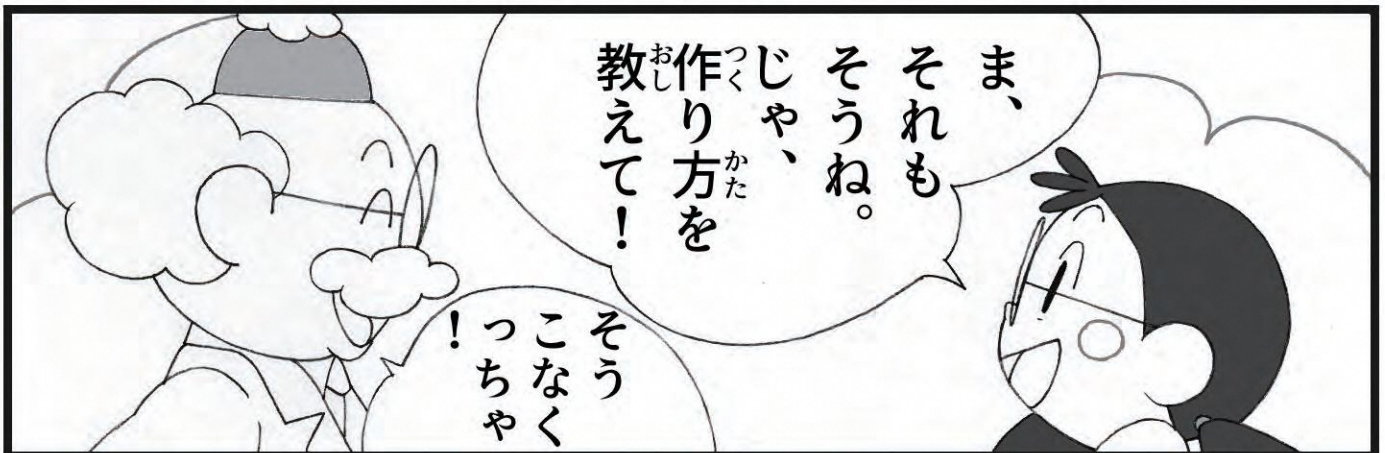 ま、
それも
そうね。
じゃ、
作り方を
教えて！
そう
こなく
っちゃ
！